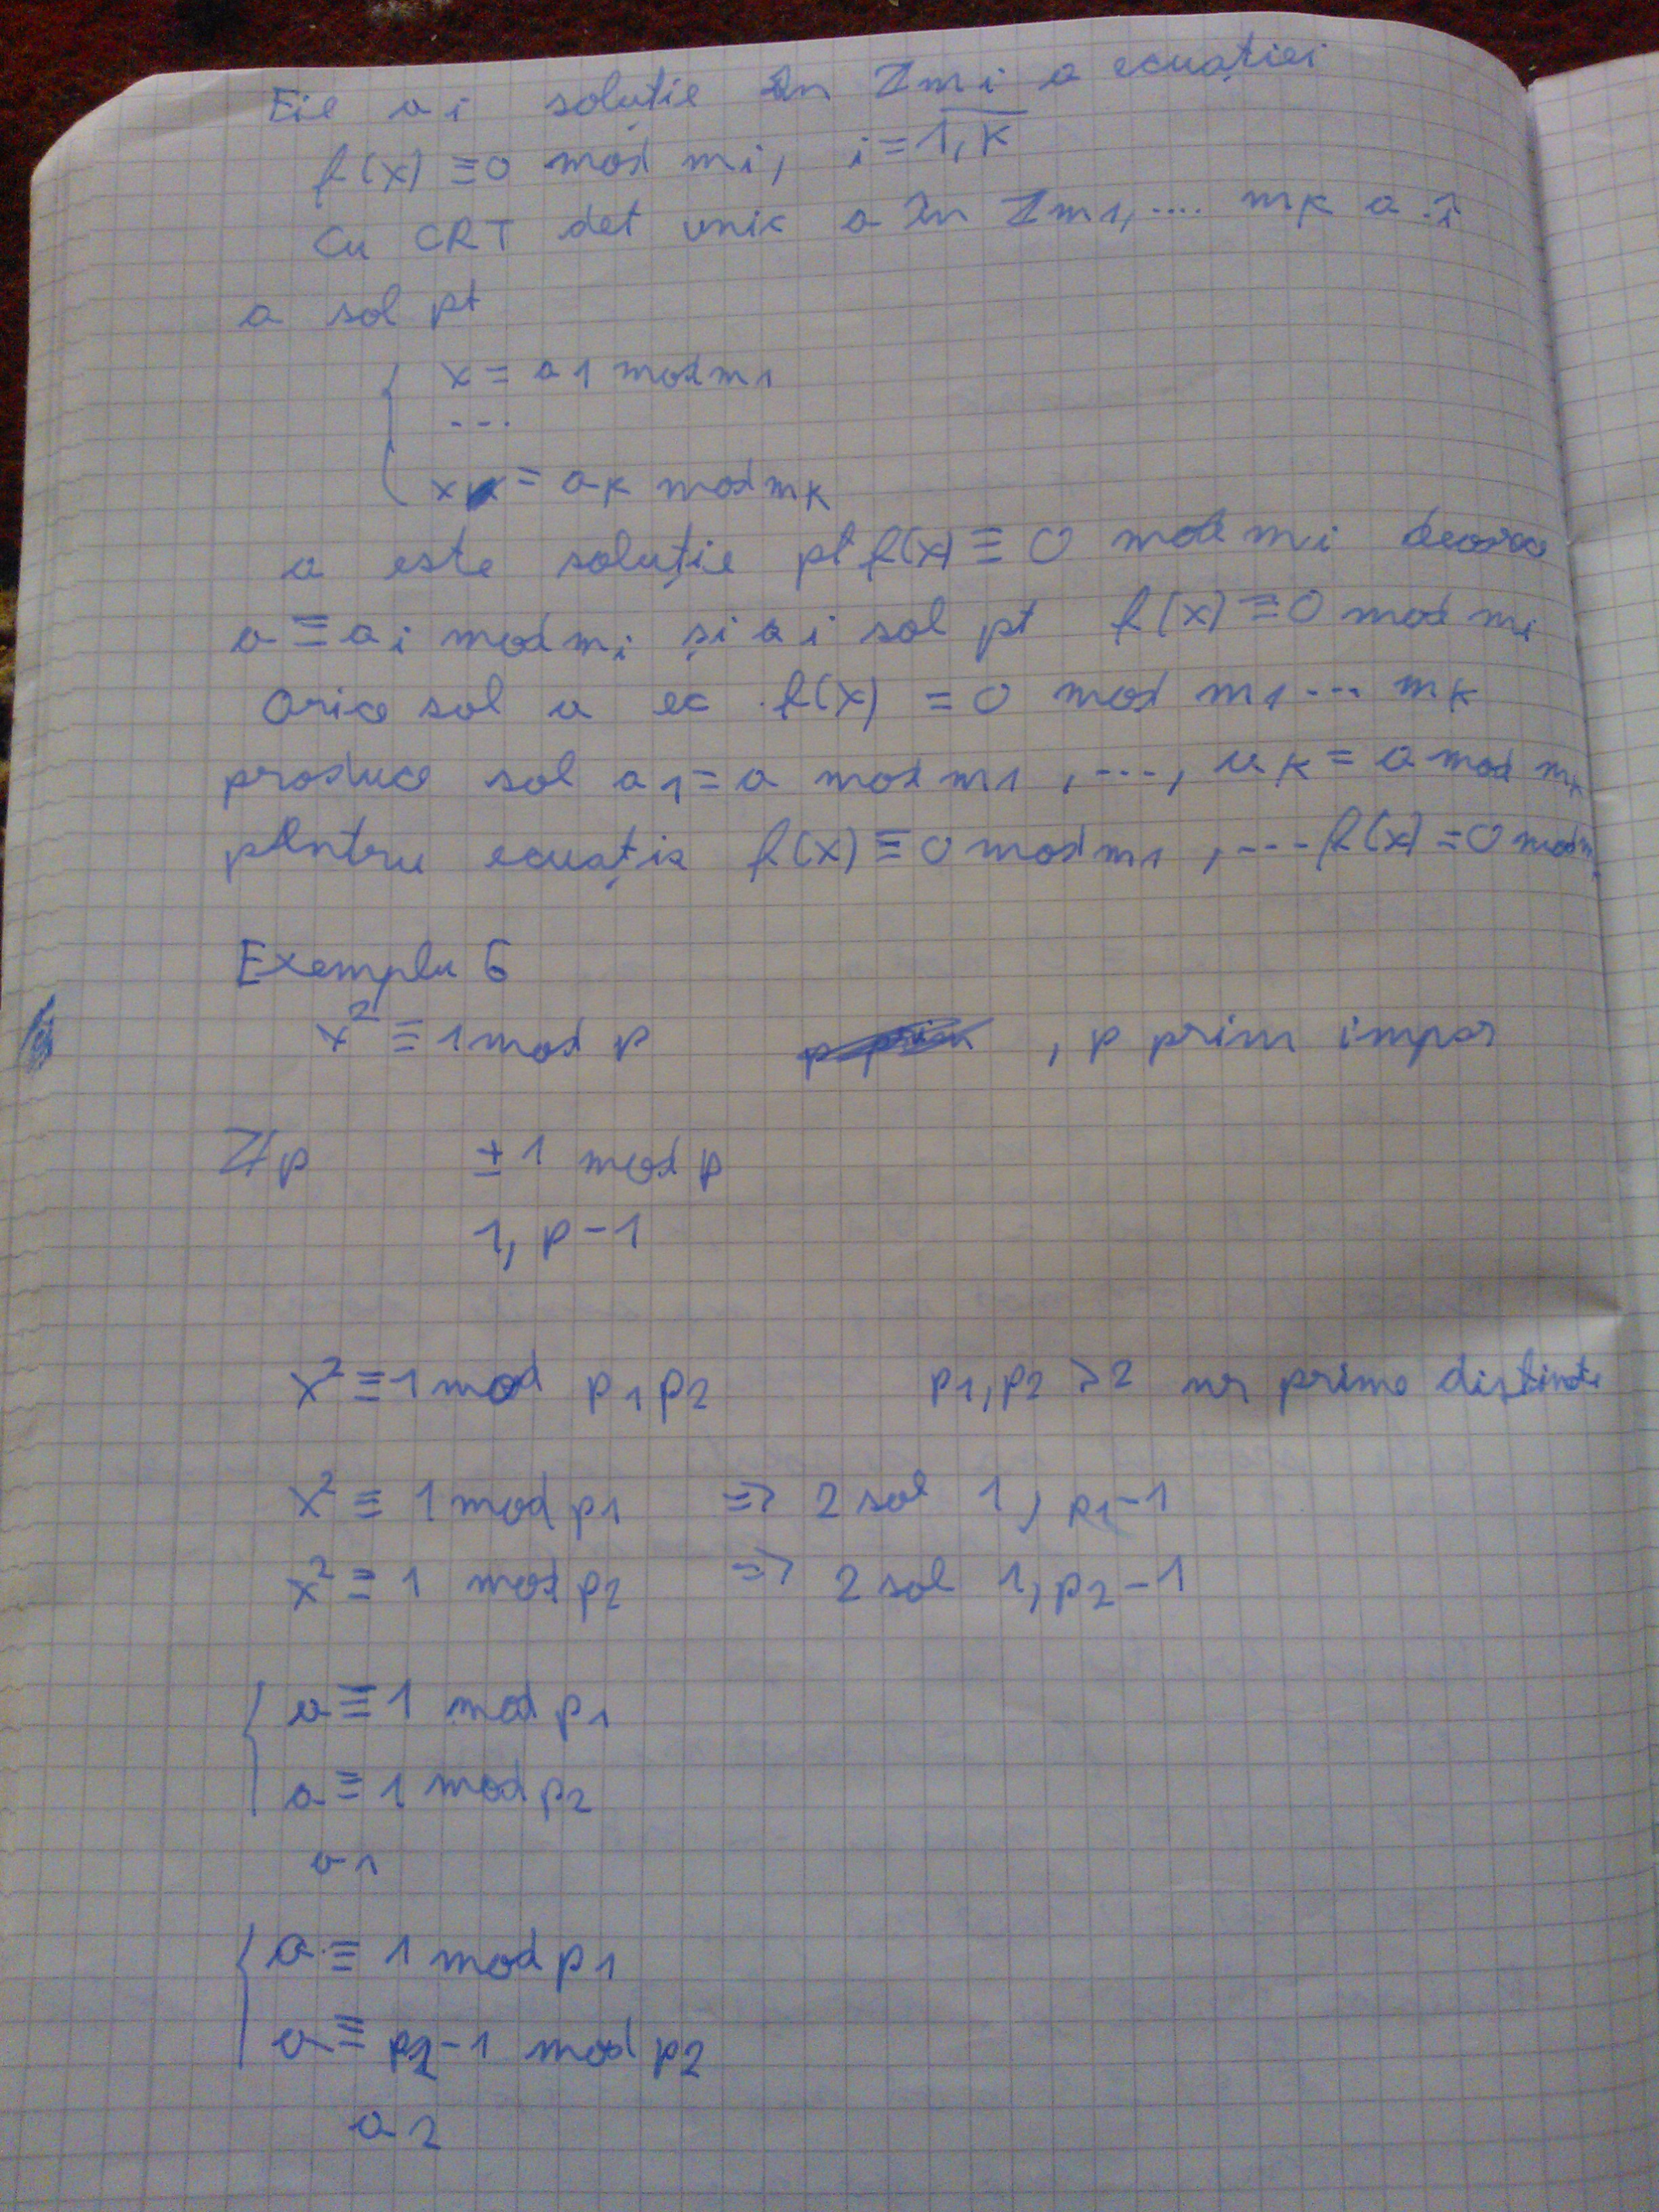 Fie ai soluție în ℤmi a ecuației
f(x) ≡ 0 mod mi, i = 1,k
Cu CRT det unic a în ℤm1,.... mk a.î
a sol pt
x = a1 mod m1
...
x = ak mod mk
a este soluție pt f(x) ≡ 0 mod mi deoarece
a ≡ ai mod mi și ai sol pt f(x) ≡ 0 mod mi
Orice sol a ec f(x) = 0 mod m1 ... mk
produce sol a1 = a mod m1, ..., ak = a mod mk
pentru ecuația f(x) ≡ 0 mod m1, ... f(x) = 0 mod m
Exemplu 6
x² ≡ 1 mod p , p prim impar
ℤp ± 1 mod p
1, p-1
x² ≡ 1 mod p1p2 p1, p2 > 2 nr prime distincte
x² ≡ 1 mod p1 => 2 sol 1, p1-1
x² ≡ 1 mod p2 => 2 sol 1, p2-1
a ≡ 1 mod p1
a ≡ 1 mod p2
a1
a ≡ 1 mod p1
a ≡ p2-1 mod p2
a2